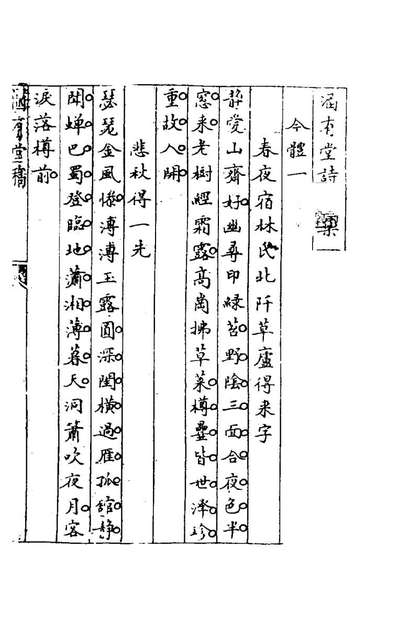 涵有堂詩集
今體一
春夜宿林氏北阡草廬得來字
靜覺山齋好幽尋印綠苔野陰三面合夜色半
窓來老樹經霜露高崗拂草萊樽罍皆世澤珍
重故人開
悲秋得一先
瑟瑟金風慘漙漙玉露圓深閨橫過雁孤館靜
聞蟬巴蜀登臨地瀟湘薄暮天洞簫吹夜月客
淚落樽前
涵有堂稿